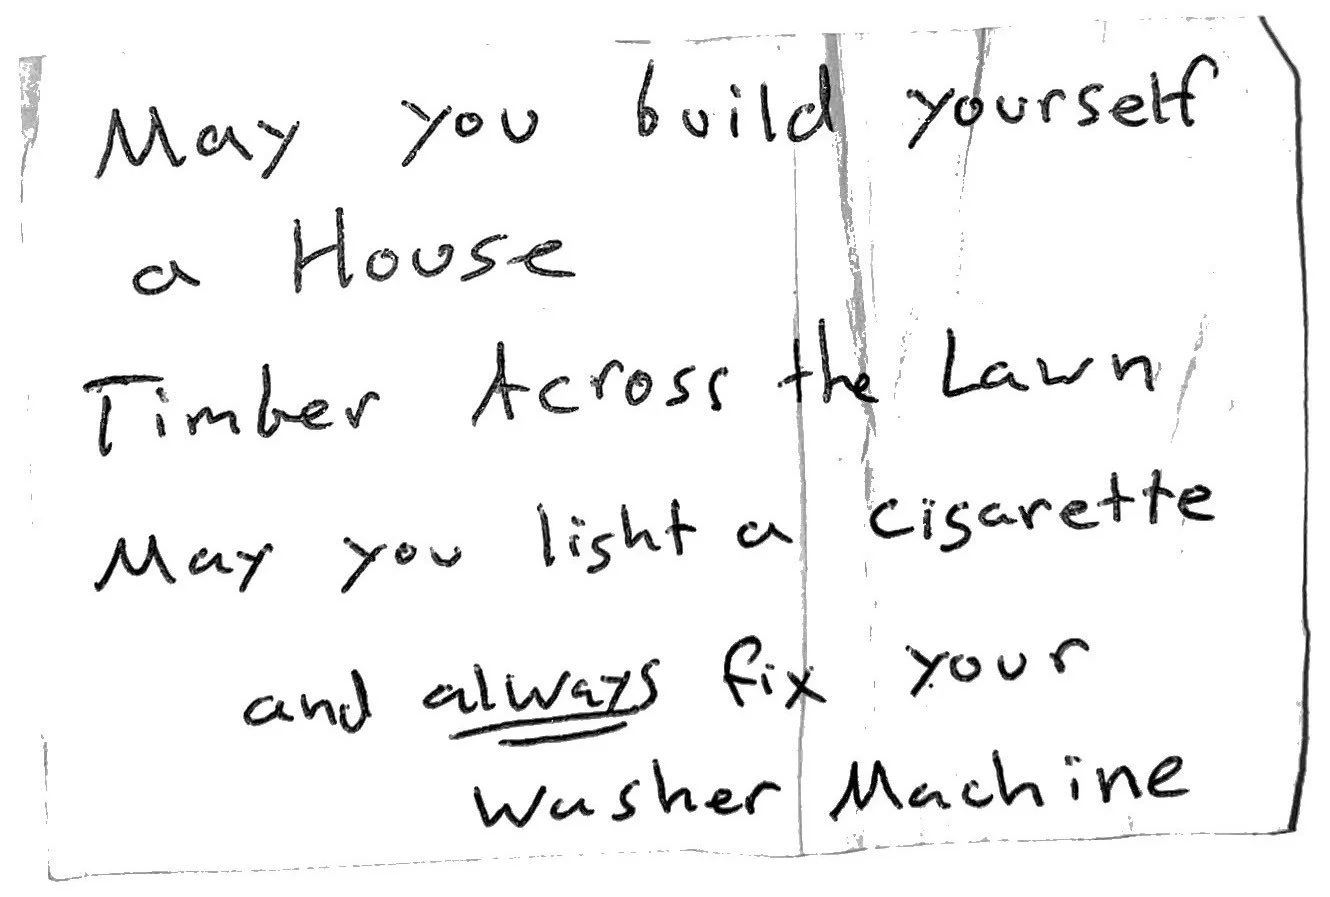 May you build yourself
a House
Timber Across the Lawn
May you light a cigarette
and always fix your
Washer Machine